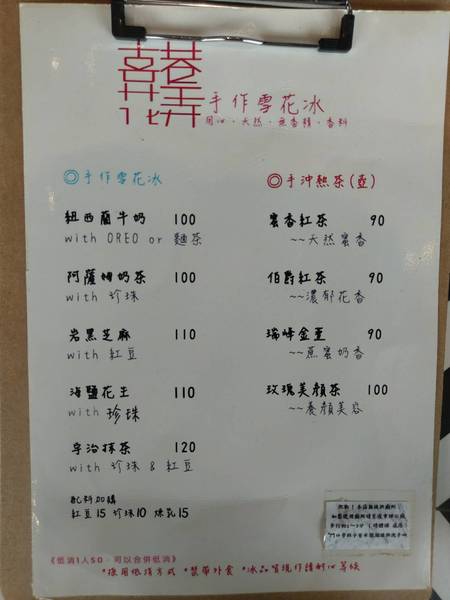 手作雪花冰
用心·天然·無香精·香料
◎手作雪花冰
紐西蘭牛奶 100
with OREO or 麵茶
阿薩姆奶茶 100
with 珍珠
岩黑芝麻 110
with 紅豆
海鹽花生 110
with 珍珠
宇治抹茶 120
with 珍珠 & 紅豆
配料加購
紅豆15 珍珠10 煉乳15
◎手沖熱茶(壺)
蜜香紅茶 90
~~天然蜜香
伯爵紅茶 90
~~濃郁花香
瑞峰金萱 90
~~蔗蜜奶香
玫瑰美顏茶 100
~~養顏美容
《低消1人50，可以合併低消》
*採用低消方式 *禁帶外食 *冰品皆現作請耐心等候